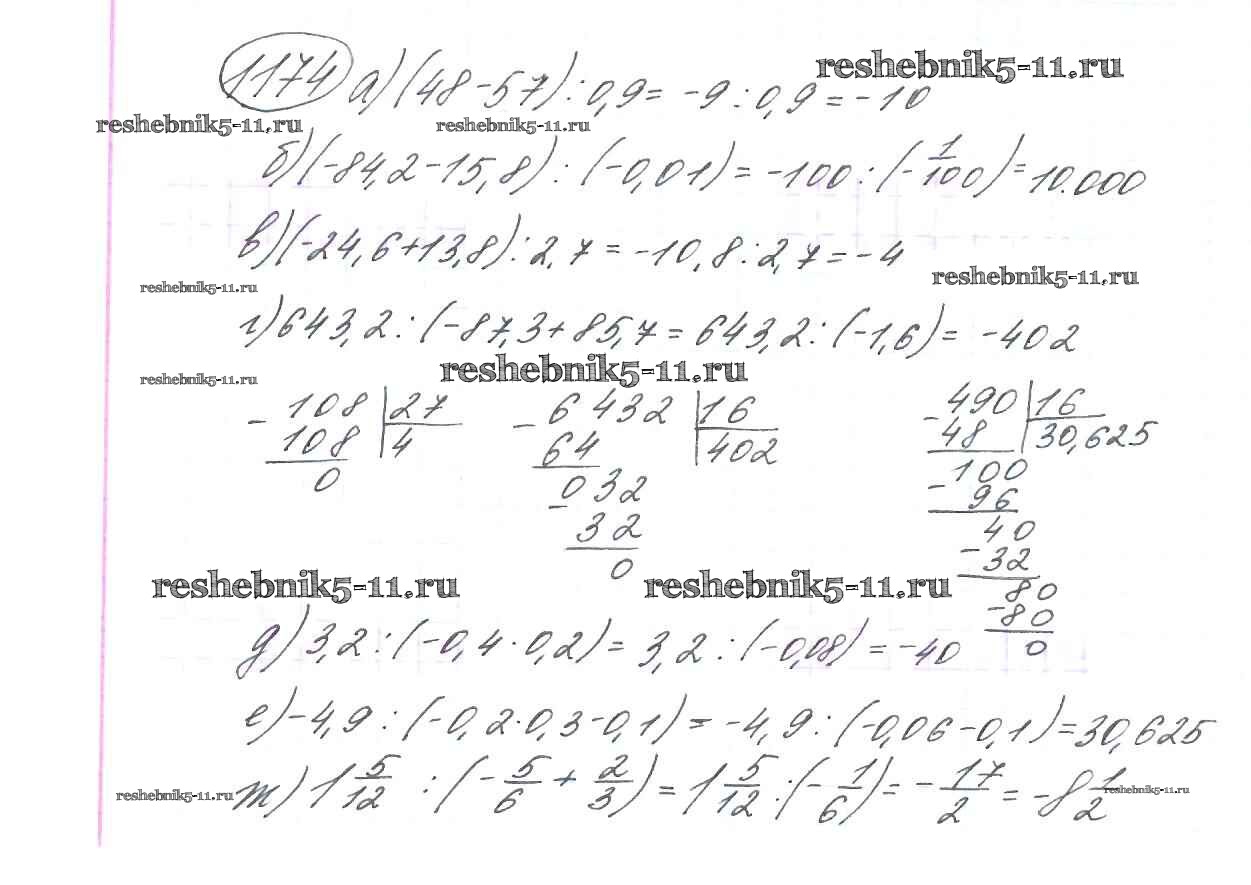 1174 а) (48-57) : 0,9 = -9 : 0,9 = -10
reshebnik5-11.ru
reshebnik5-11.ru reshebnik5-11.ru
б) (-84,2-15,8) : (-0,01) = -100 : (-1/100) = 10.000
в) (-24,6+13,8) : 2,7 = -10,8 : 2,7 = -4
reshebnik5-11.ru reshebnik5-11.ru
г) 643,2 : (-87,3+85,7 = 643,2 : (-1,6) = -402
reshebnik5-11.ru reshebnik5-11.ru
- 108 | 27 - 6432 | 16 - 490 | 16
108 | 4 64 | 402 48 | 30,625
0 - 032 - 100
32 96
0 - 40
32
reshebnik5-11.ru reshebnik5-11.ru - 80
80
0
д) 3,2 : (-0,4 · 0,2) = 3,2 : (-0,08) = -40
е) -4,9 : (-0,2 · 0,3 - 0,1) = -4,9 : (-0,06 - 0,1) = 30,625
reshebnik5-11.ru ж) 1 5/12 : (-5/6 + 2/3) = 1 5/12 : (-1/6) = -17/2 = -8 1/2 reshebnik5-11.ru